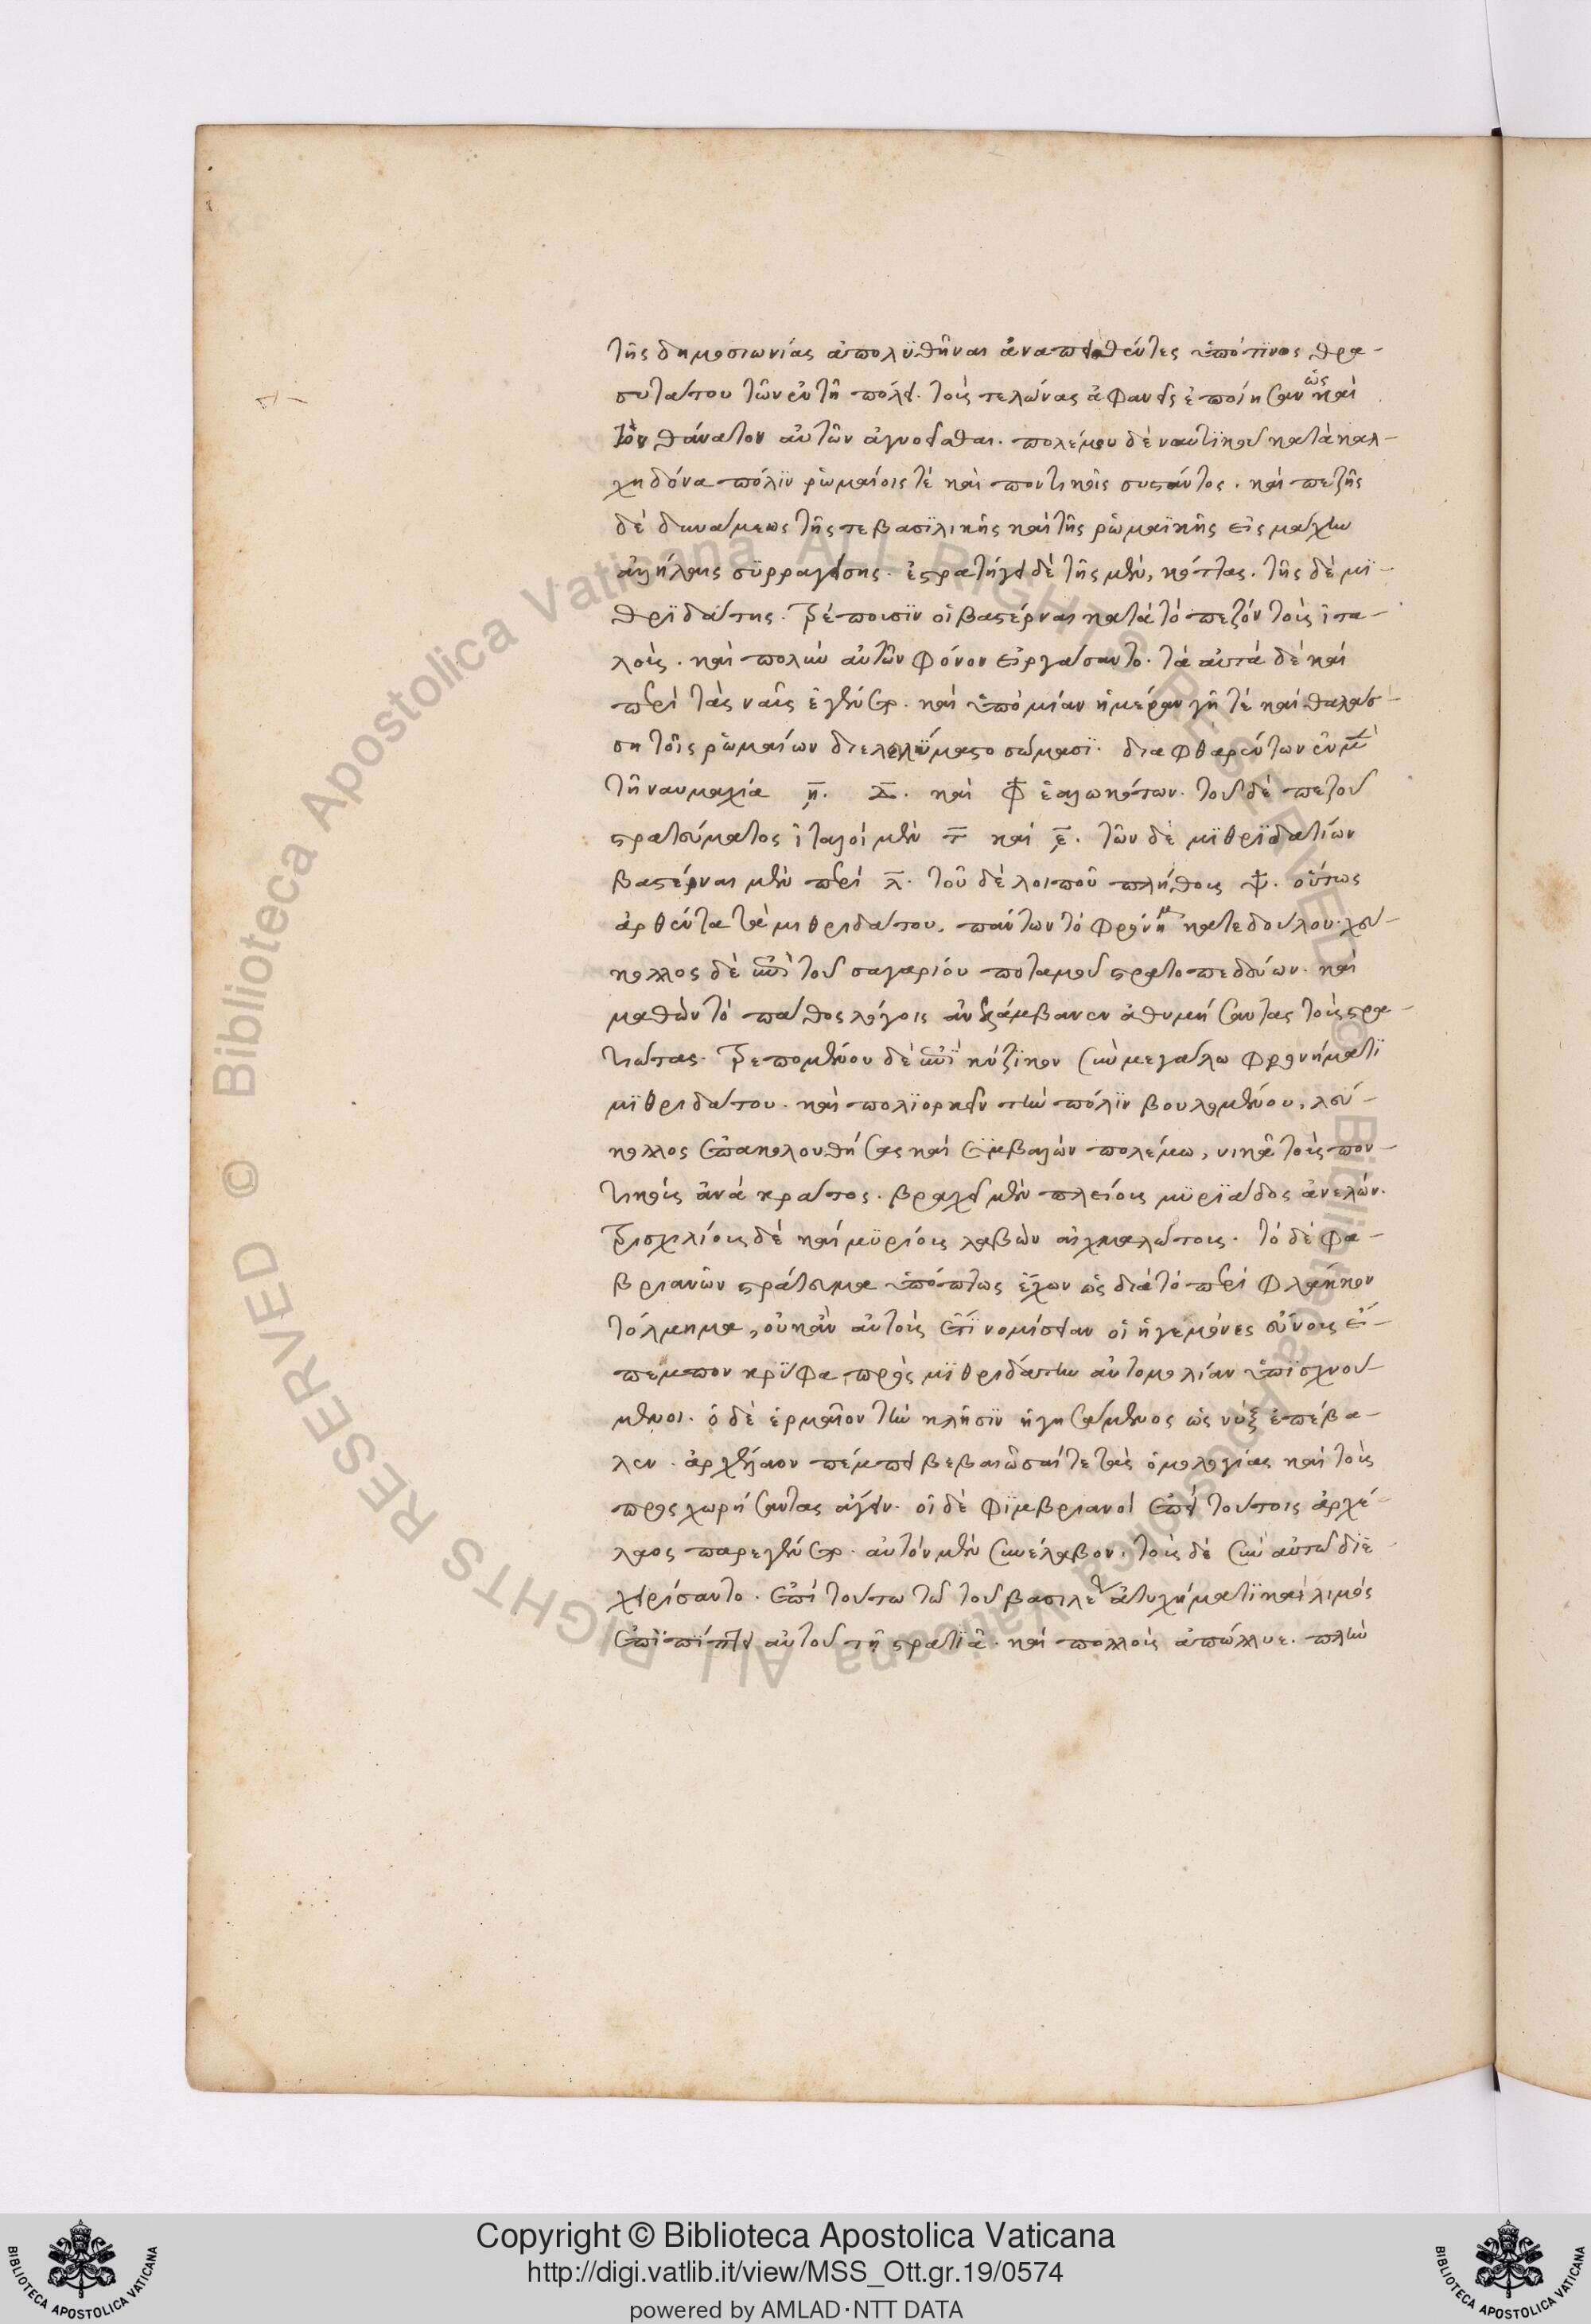 τῆς δημοσιωνίας ἀπολϋθῆναι ἀναπεισθέντες ὑπό τϊνος θρα-
συτάτου τῶν ἐν τῆ πόλει. τοὺς τελώνας ἀφανεῖς ἐποίησαν ὡς καὶ
τὸν θάνατον αὐτῶν ἀγνοεῖσθαι. πολέμου δὲ ναυτϊκοῦ κατὰ καλ-
χηδόνα πόλϊν ῥωμαίοις τὲ καὶ ποντικοῖς συστάντος. καὶ πεζῆς
δὲ δυνάμεως τῆς τε βασϊλικῆς καὶ τῆς ῥωμαϊκῆς εἰς μάχην
ἀλλήλαις σϋρραγείσης. ἐστρατήγει δὲ τῆς μὲν, κόττας. τῆς δὲ μϊ-
θρϊδάτης. τρέπουσϊν οἱ βαστέρναι κατὰ τὸ πεζὸν τοὺς ἰτα-
λοὺς. καὶ πολὺν αὐτῶν φόνον εἰργάσαντο. τὰ αὐτὰ δὲ καὶ
περὶ τὰς ναῦς ἐγένετο. καὶ ὑπὸ μίαν ἡμέραν γῆ τὲ καὶ θάλασ-
ση τοῖς ῥωμαίων διελελύμαστο σώμασϊ. διαφθαρέντων ἐν μὲν
τῆ ναυμαχία ͵η. καὶ φ ἑαλωκότων. τοῦ δὲ πεζοῦ
στρατεύματος ἰταλοὶ μὲν τ καὶ ͵ε. τῶν δὲ μϊθρϊδατίων
βαστέρναι μὲν περὶ λ. τοῦ δὲ λοιποῦ πλήθους ψ. οὕτως
ἀρθέντα τὰ μιθριδάτου, πάντων τὸ φρόνημα κατεδουλου. λεύ-
κολλος δὲ ἐπὶ τοῦ σαγαρίου ποταμοῦ στρατοπεδεύων. καὶ
μαθὼν τὸ πάθος λόγοις ἀνελάμβανεν ἀθυμήσαντας τοὺς στρα-
τιώτας. τρεπομένου δὲ ἐπὶ κύζϊκον σὺν μεγάλω φρονήματϊ
μϊθριδάτου. καὶ πολϊορκεῖν τὴν πόλϊν βουλομένου, λεύ-
κολλος ἐπακολουθήσας καὶ συμβαλὼν πολέμω, νικᾶ τοὺς πον-
τικοὺς ἀνὰ κράτος. βραχεῖ μὲν πλείους μϋρϊάδος ἀνελών.
τρισχιλίους δὲ καὶ μϋρίους λαβὼν αἰχμαλώτους. τὸ δὲ φα-
βριανῶν στράτευμα ὑπόπτως ἔχων ὡς διὰ τὸ περὶ φλάκκον
τόλμημα, οὐκ ἂν αὐτοὺς ἔτϊ νομίσειαν οἱ ἡγεμόνες εὔνους εἰ-
πεμπον κρϋφα πρὸς μϊθριδάτην αὐτομολίαν ὑπισχνού-
μενοι. ὁ δὲ ἑρμαῖον τὴν κλῆσϊν ἡγησάμενος ὡς νὺξ ἐπέβα-
λεν. ἀρχέλαον πέμπει βεβαιῶσαί τε τὰς ὁμολογίας καὶ τοὺς
προσχωρήσαντας ἀγειν. οἱ δὲ φϊμβριανοὶ ἐπεὶ τούτοις ἀρχέ-
λαος παρεγένετο. αὐτὸν μὲν συνέλαβον, τοὺς δὲ σὺν αὐτῶ διε-
χειρίσαντο. ἐπὶ τούτω τῶ τοῦ βασιλέως ἀτυχήματϊ καὶ λιμὸς
ἐπϊπίπτει αὐτοῦ τῆ στρατϊᾶ. καὶ πολλοὺς ἀπώλλυε. πλὴν
Copyright © Biblioteca Apostolica Vaticana
http://digi.vatlib.it/view/MSS_Ott.gr.19/0574
powered by AMLAD·NTT DATA
BIBLIOTECA APOSTOLICA VATICANA
BIBLIOTECA APOSTOLICA VATICANA
© Biblioteca Apostolica Vaticana ALL RIGHTS RESERVED
© Biblioteca Apostolica Vaticana ALL RIGHTS RESERVED